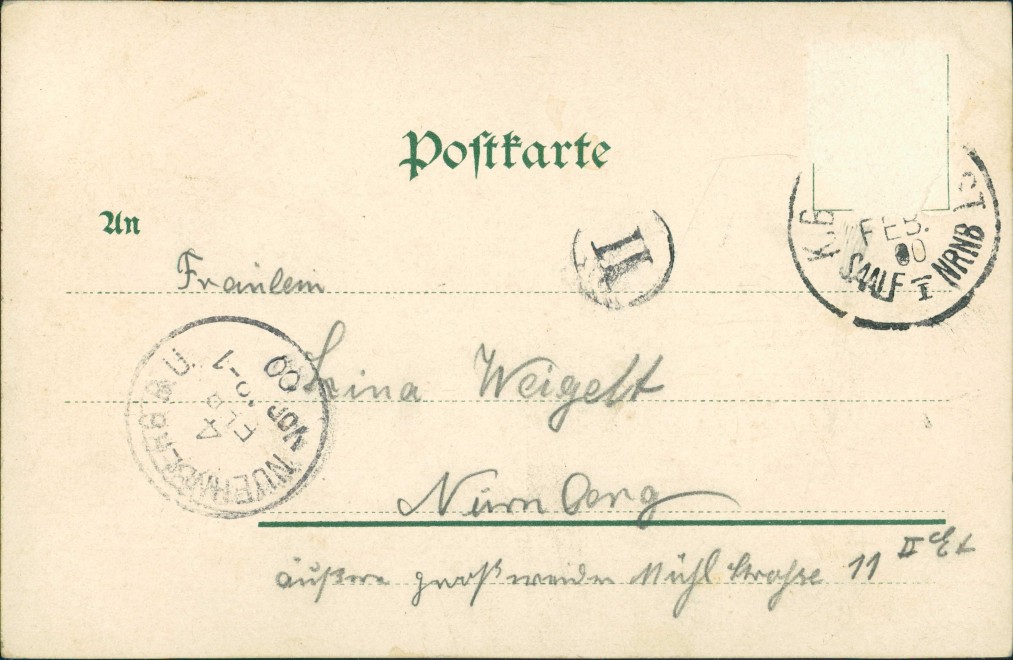 Postkarte
An
Fräulein
Lina Weigelt
Nürnberg
äußere großweiden Mühlstraße 11 II Et
II
K.B.
FEB.
00
SAALF I NRNB
NUERNBERG
4
FEB
VOR
00